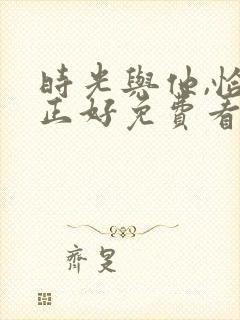 時光與他,恰
正好免費看
齊旻